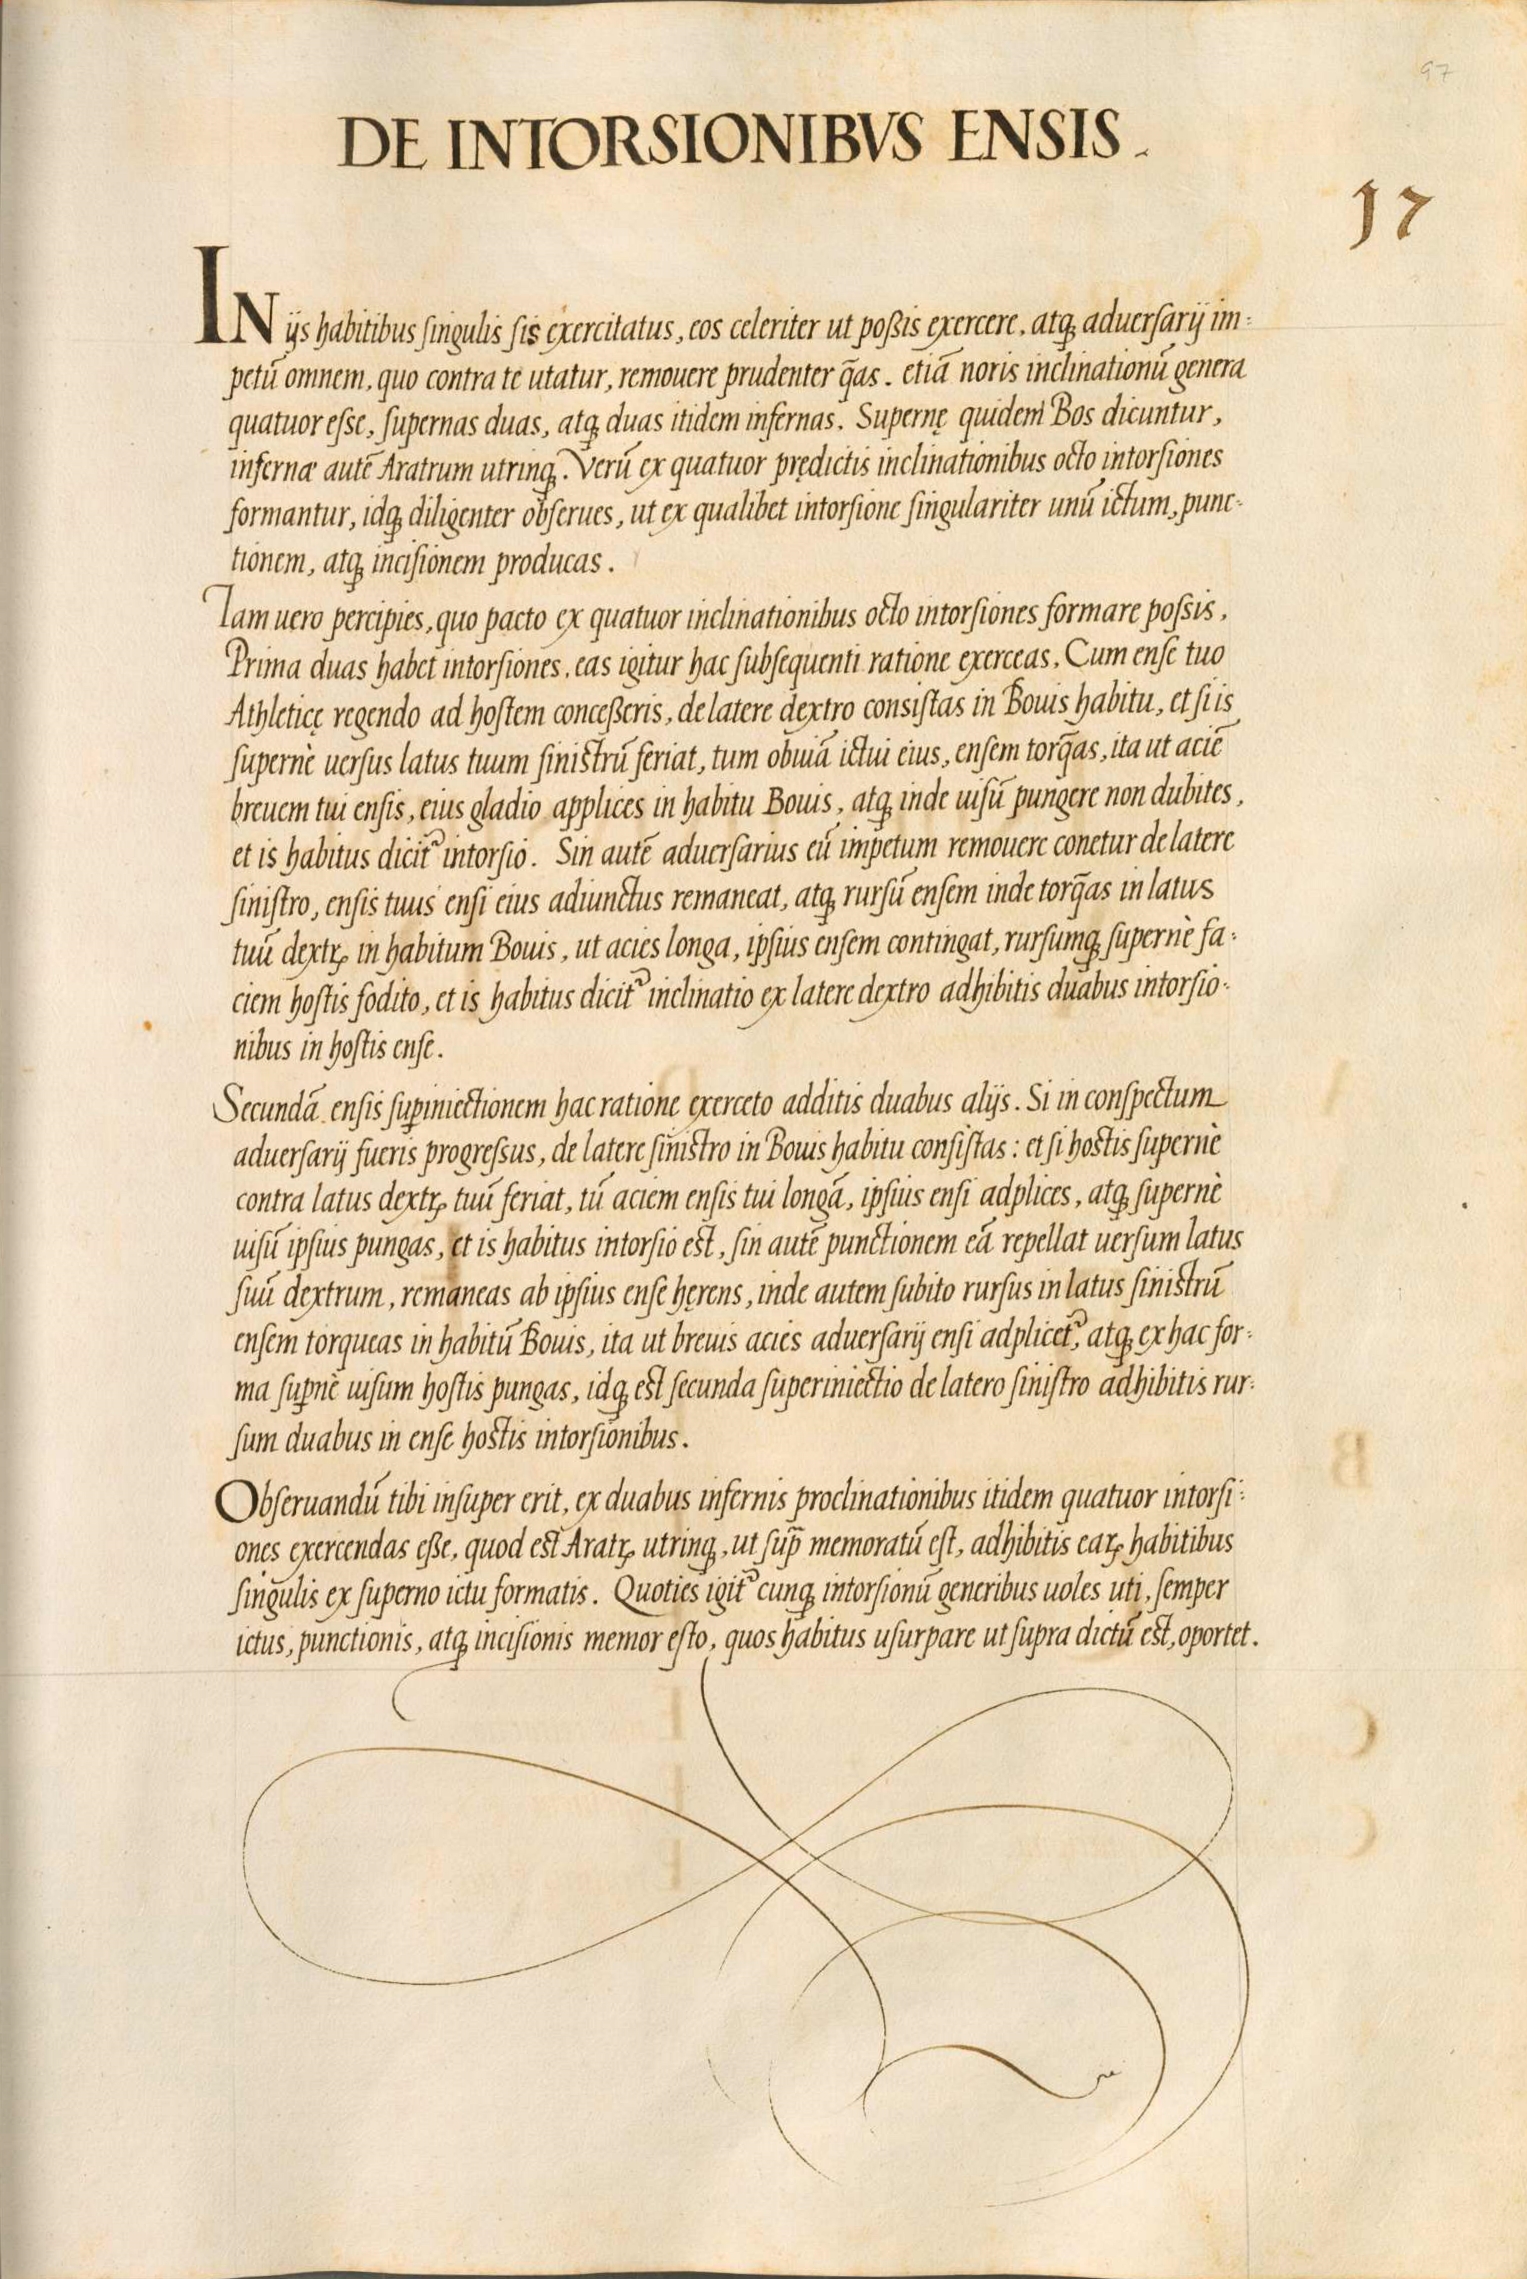 97
DE INTORSIONIBVS ENSIS.
17
IN ijs habitibus singulis sis exercitatus, eos celeriter ut poßis exercere, atq̣ aduersarij im:
petũ omnem, quo contra te utatur, remouere prudenter q̃as. etiã noris inclinationũ genera
quatuor esse, supernas duas, atq̣ duas itidem infernas. Supernę quidem Bos dicuntur,
infernæ autẽ Aratrum utrinq̣. Verũ ex quatuor prędictis inclinationibus octo intorsiones
formantur, idq̣ diligenter obserues, ut ex qualibet intorsione singulariter unũ ictum, punc:
tionem, atq̣ incisionem producas.
Iam uero percipies, quo pacto ex quatuor inclinationibus octo intorsiones formare possis,
Prima duas habet intorsiones, eas igitur hac subsequenti ratione exerceas. Cum ense tuo
Athleticę regendo ad hostem conceßeris, de latere dextro consistas in Bouis habitu, et si is
supernè uersus latus tuum sinistrũ feriat, tum obuiã ictui eius, ensem torq̃as, ita ut aciẽ
breuem tui ensis, eius gladio applices in habitu Bouis, atq̣ inde uisũ pungere non dubites,
et is habitus dicit᷑ intorsio. Sin autẽ aduersarius eũ impetum remouere conetur de latere
sinistro, ensis tuus ensi eius adiunctus remaneat, atq̣ rursũ ensem inde torq̃as in latus
tuũ dextꝝ in habitum Bouis, ut acies longa, ipsius ensem contingat, rursumq̣ supernè fa:
ciem hostis fodito, et is habitus dicit᷑ inclinatio ex latere dextro adhibitis duabus intorsio:
nibus in hostis ense.
Secundã ensis suꝑiniectionem hac ratione exerceto additis duabus alijs. Si in conspectum
aduersarij fueris progressus, de latere sinistro in Bouis habitu consistas: et si hostis supernè
contra latus dextꝝ tuũ feriat, tũ aciem ensis tui longã, ipsius ensi adplices, atq̣ supernè
uisũ ipsius pungas, et is habitus intorsio est, sin autẽ punctionem eã repellat uersum latus
suũ dextrum, remaneas ab ipsius ense hęrens, inde autem subito rursus in latus sinistrũ
ensem torqueas in habitũ Bouis, ita ut breuis acies aduersarij ensi adplicet᷑, atq̣ ex hac for:
ma suꝑnè uisum hostis pungas, idq̣ est secunda superiniectio de latero sinistro adhibitis rur:
sum duabus in ense hostis intorsionibus.
Obseruandũ tibi insuper erit, ex duabus infernis proclinationibus itidem quatuor intorsi:
ones exercendas eße, quod est Aratꝝ utrinq̣, ut sup̃ memoratũ est, adhibitis eaꝝ habitibus
singulis ex superno ictu formatis. Quoties igit᷑ cunq̣ intorsionũ generibus uoles uti, semper
ictus, punctionis, atq̣ incisionis memor esto, quos habitus usurpare ut supra dictũ est, oportet.